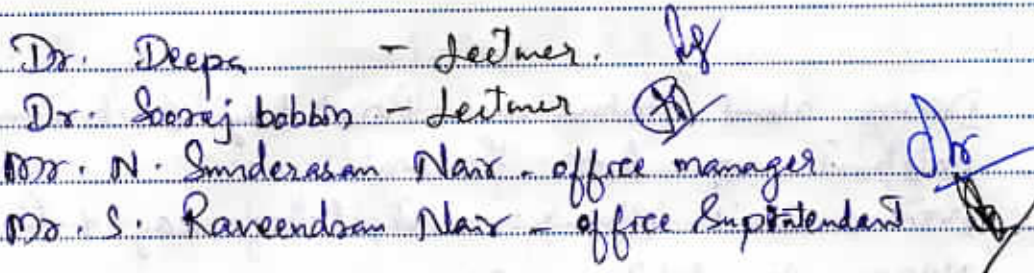 Dr. Deepa - Lectuer.
Dr. Sooraj bobbin - Lectuer
Mr. N. Sunderasan Nair - office manager.
Mr. S. Raveendran Nair - office Supritendant